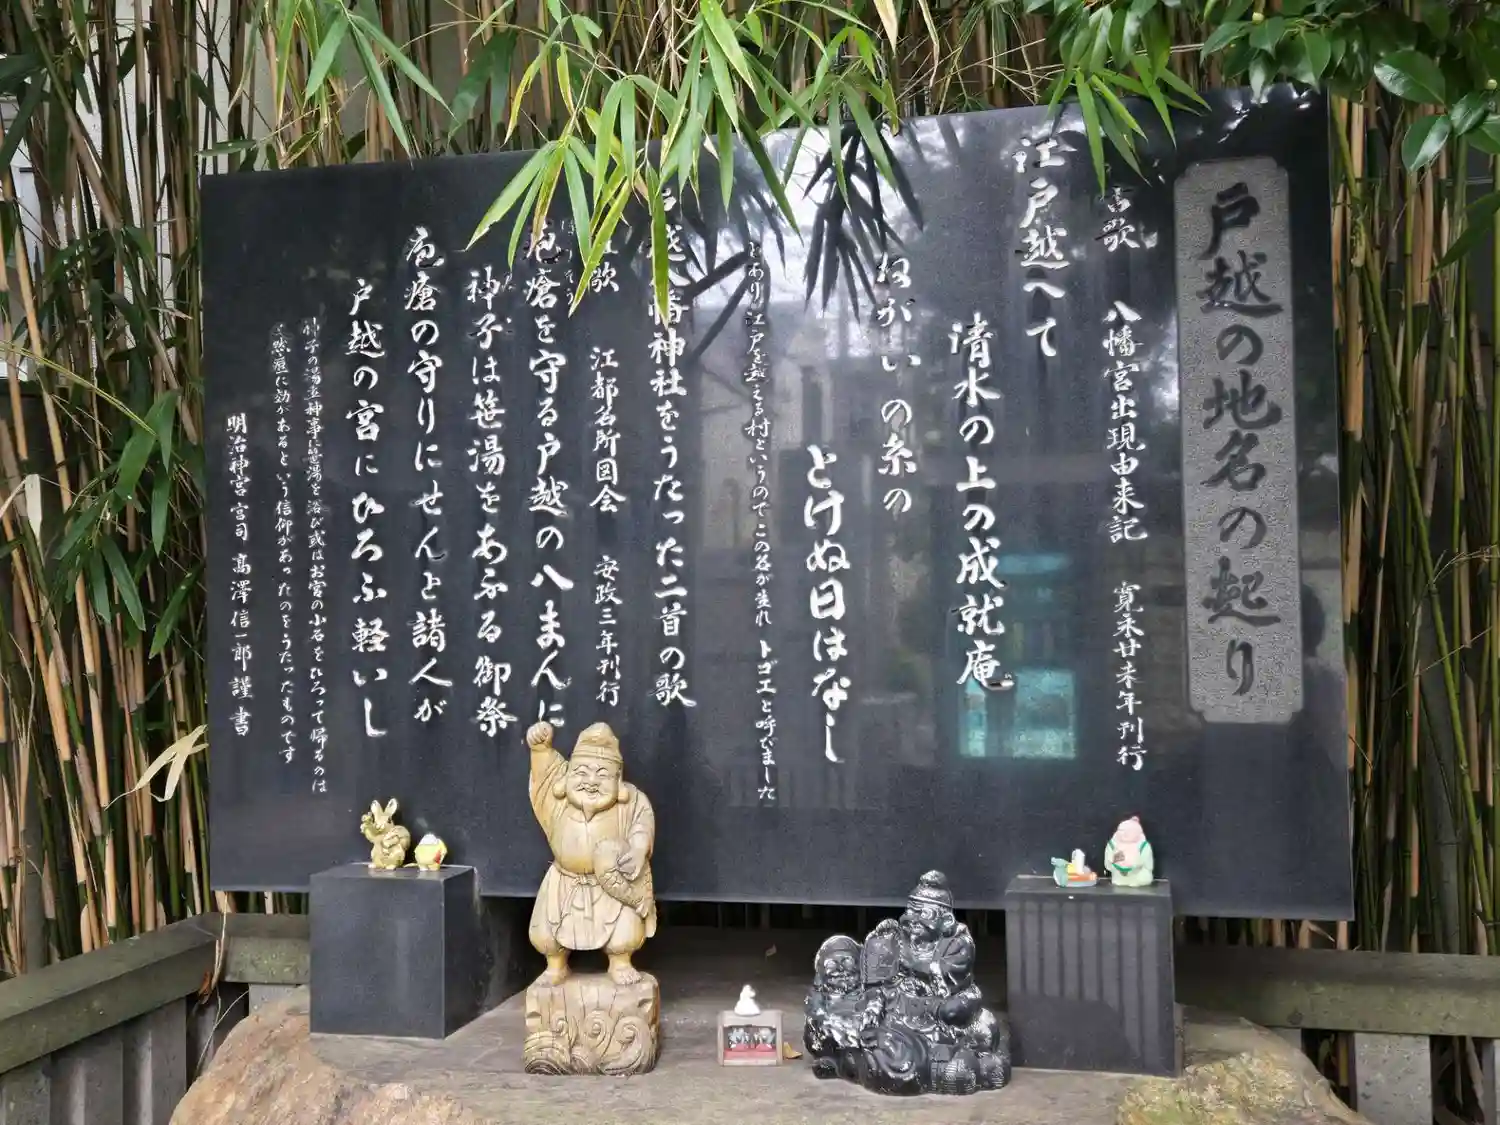 戸越の地名の起り
古歌 八幡宮出現由来記 寛永廿未年刊行
江戸越へて
清水の上の成就庵
ねがいの糸の
とけぬ日はなし
とあり江戸を越える村というのでこの名が生れ トゴエと呼びました
戸越八幡神社をうたった二首の歌
歌 江都名所図会 安政三年刊行
疱瘡を守る戸越の八まんに
神子は笹湯をあふる御祭
疱瘡の守りにせんと諸人が
戸越の宮にひろふ軽いし
神子の湯立神事に笹湯を浴び或はお宮の小石をひろって帰るのは
疱瘡に効があるという信仰があったのをうたったものです
明治神宮宮司 高澤信一郎謹書